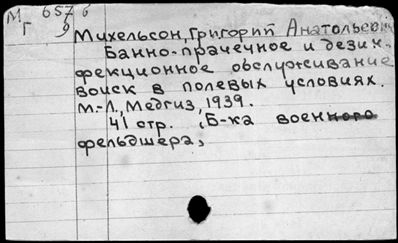 М 657 6
Г 9
Михельсон, Григорий Анатольевич
Банно-прачечное и дезин-
фекционное обслуживание
войск в полевых условиях.
М.-Л., Медгиз, 1939.
41 стр. (Б-ка военного
фельдшера,